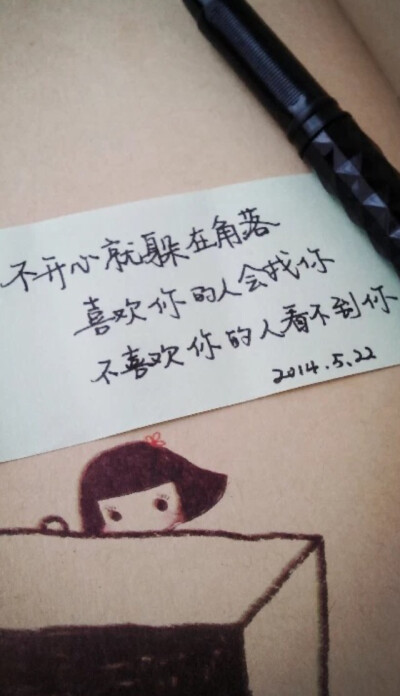 不开心就躲在角落
喜欢你的人会找你
不喜欢你的人看不到你
2014.5.22